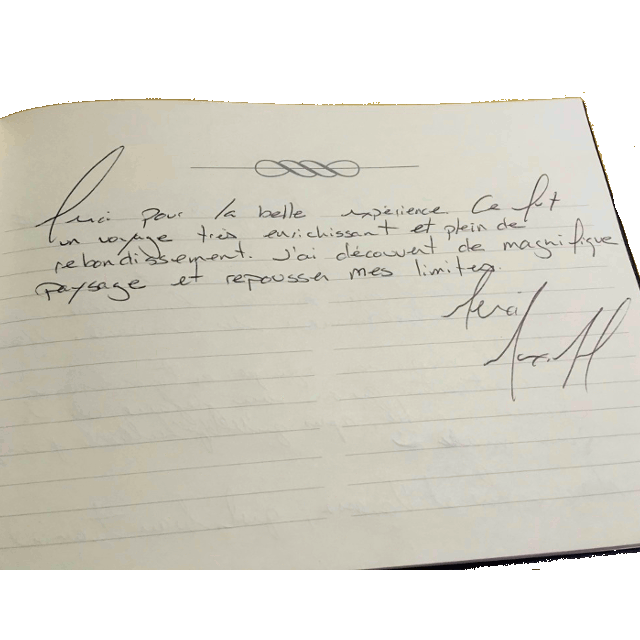 Merci pour la belle expérience Ce fut
un voyage très enrichissant et plein de
rebondissement. J'ai découvert de magnifique
paysage et repousser mes limites.
Merci